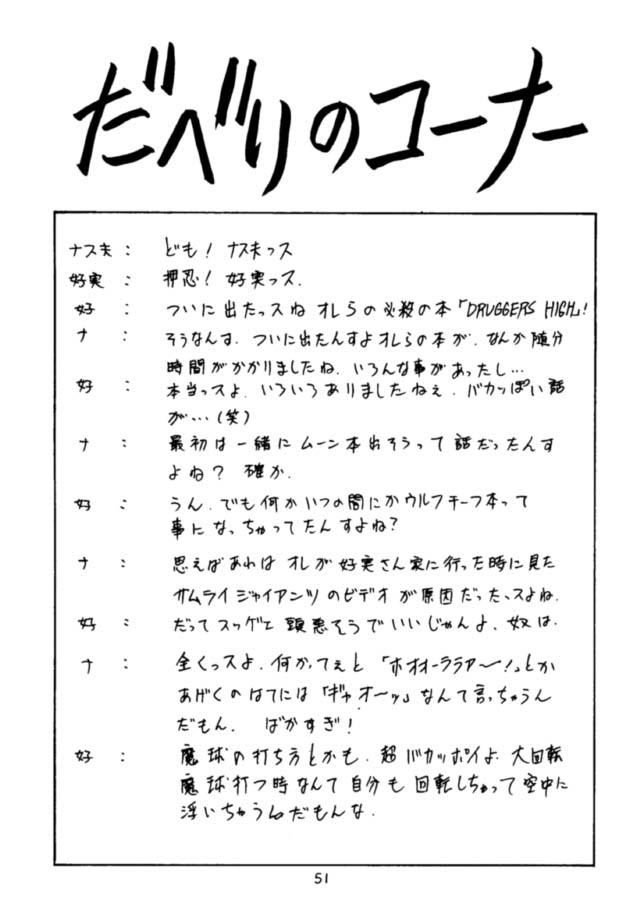 だべりのコーナー
ナス夫： ども！ナス夫っス
好実： 押忍！好実っス.
好： ついに出たっスね オレらの必殺の本「DRUGGERS HIGH」！
ナ： そうなんす. ついに出たんすよオレらの本が. なんか随分
時間がかかりましたね. いろんな事があったし…
好： 本当っスよ. いろいろありましたねぇ. バカっぽい話
が…(笑)
ナ： 最初は一緒にムーン本出そうって話だったんす
よね？ 確か.
好： うん. でも何かいつの間にかウルフチーフ本って
事になっちゃってたんすよね？
ナ： 思えばあれは オレが好実さん家に行った時に見た
サムライジャイアンツのビデオが原因だったっスよね.
好： だってスッゲェ 頭悪そうでいいじゃんよ. 奴は.
ナ： 全くっスよ. 何かってぇと「ホオオーララアァ〜！」とか
あげくのはてには「ギャオーッ」なんて言っちゃうん
だもん. ばかすぎ！
好： 魔球の打ち方とかも. 超バカッポイよ. 大回転
魔球打つ時なんて自分も回転しちゃって空中に
浮いちゃうんだもんな.
51